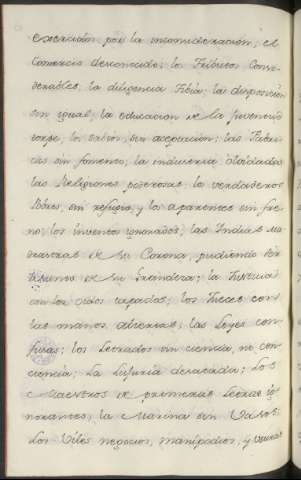 exercidas por la inconsideración; el
Comercio desconocido; los Tributos Consi-
derables; la diligencia tibia; la disposición
sin igual; la educacion de la Juventud
torpe; los sabios, sin aceptación; las Fabri-
cas sin fomento; la industria olvidada
las Religiones, poderosas, los verdaderos
Pobres, sin refugio, y los aparentes sin fre-
no; los inventos ignorados; las Indias
de su Corona, pudiendo ser
de su Grandeza; la Justicia
con los oidos tapados; los Jueces con
las manos abiertas; las Leyes con
fusas; los Letrados sin ciencia, ni con
ciencia; La Lujuria desatada; Los
Maestros de primeras Letras ig-
norantes; la Marina sin Vasos;
Los Viles negocios, manipulados, y